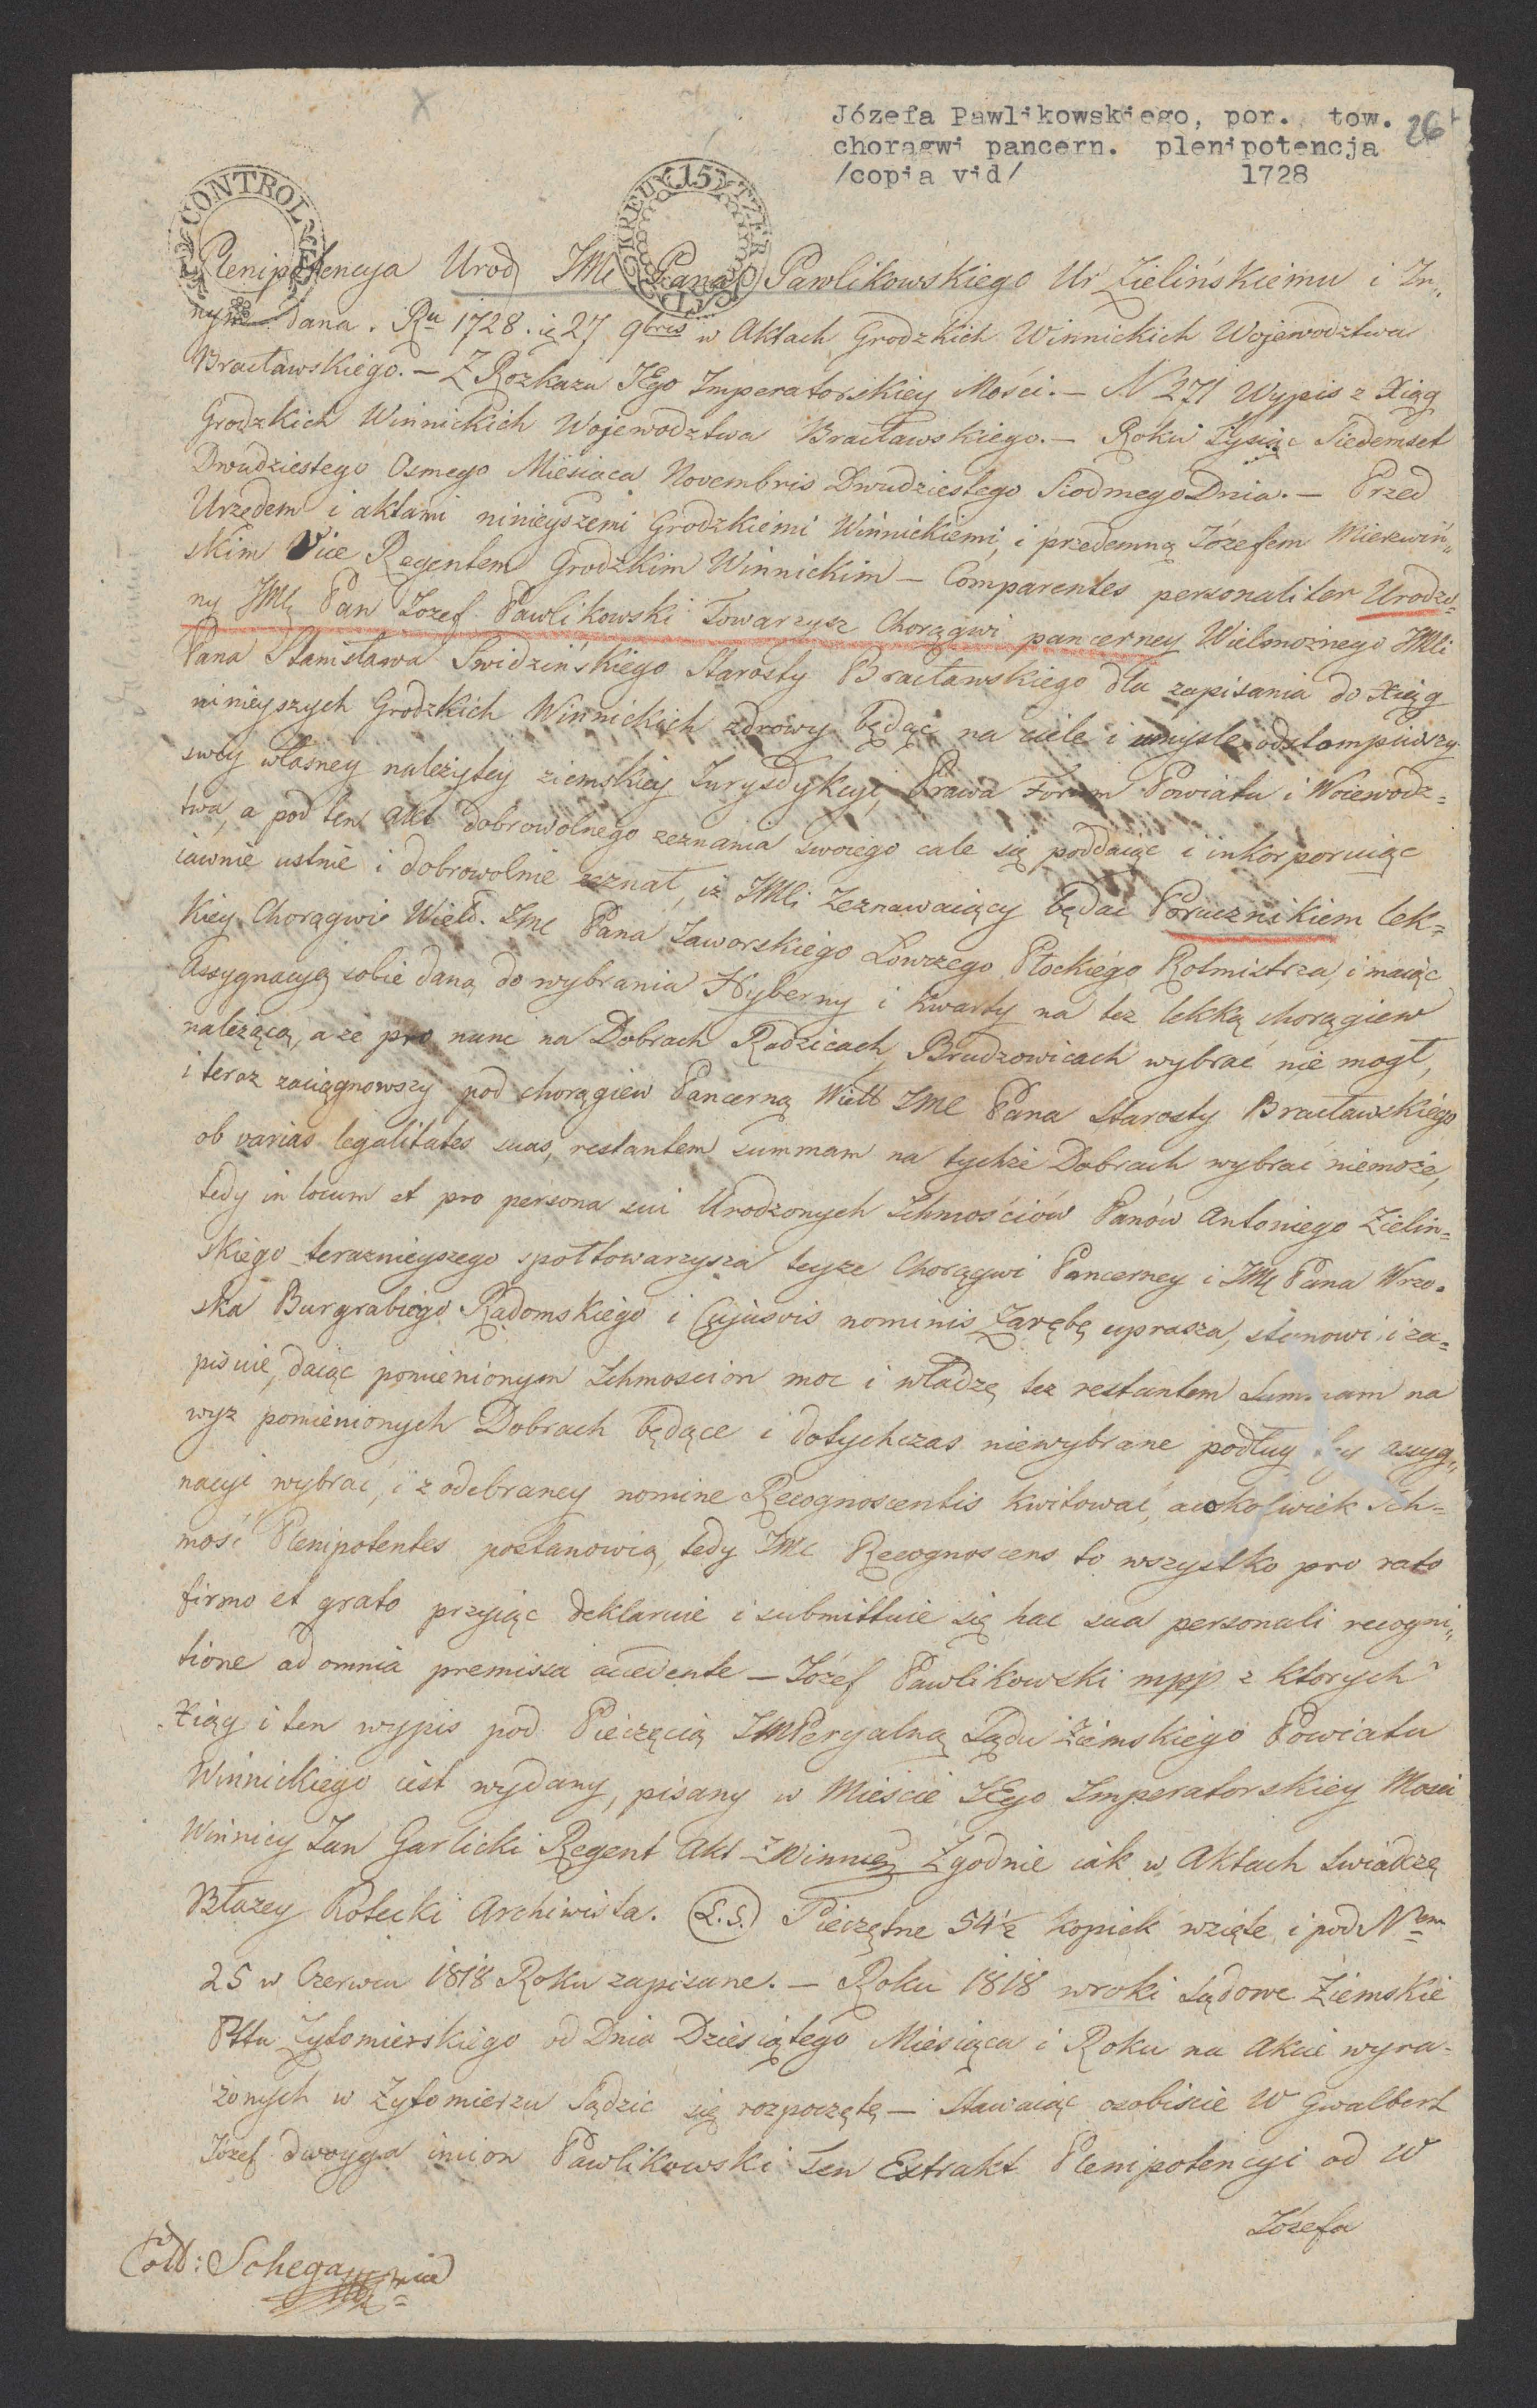 Józefa Pawlikowskiego, por. tow.
chorągwi pancern. plenipotencja
/copia vid/ 1728
26
CONTROLE
15 KREUTZER
Plenipotencya Urod JMC Pana Pawlikowskiego Ur Zielińskiemu i In„
nym dana. Ru 1728. ię 27 9bris w Aktach Grodzkich Winnickich Wojewodztwa
Bracławskiego. — Z Rozkazu JEgo Imperatorskiey Mości. — N 271 Wypis z Xiąg
Grodzkich Winnickich Wojewodztwa Bracławskiego. — Roku Tysiąc Siedemset
Dwudziestego Osmego Miesiąca Novembris Dwudziestego Siodmego Dnia. — Przed
Urzędem i aktami ninieyszemi Grodzkiemi Winnickiemi, i przedemną Józefem Mierzwiń„
skim Vice Regentem Grodzkim Winnickim — Comparentes personaliter Urodzo„
ny JMC Pan Jozef Pawlikowski Towarzysz Chorągwi pancerney Wielmożnego JMCi
Pana Stanisława Swidzińskiego Starosty Bracławskiego dla zapisania do Xiąg
ninieyszych Grodzkich Winnickich zdrowy będąc na ciele i umysle odstompiwszy
swey własney należytey ziemskiey Jurysdykcyi, Prawa Forum Powiatu i Woiewodz=
twa, a pod ten akt dobrowolnego zeznania swoiego cale się poddaiąc i inkorporuiąc
iawnie ustnie i dobrowolnie zeznał, iż JMCi Zeznawaiący będąc Porucznikiem lek=
kiey Chorągwi Wield. Jmc Pana Jaworskiego Łowczego Płockiego Rotmistrza, i maiąc
Assygnacyę sobie daną do wybrania Hyberny i Kwarty na tez lekką chorągiew
należącą, a że pro nunc na Dobrach Radzicach, Brudzowicach wybrać nie mogł,
i teraz zaciągnowszy pod chorągiew Pancerną Wielt JMC Pana Starosty Bracławskiego
ob varias legalitates suas, restantem summam na tychże Dobrach wybrać niemoże,
tedy in locum et pro persona sui Urodzonych Ichmościów Panów Antoniego Zieliń=
skiego teraznieyszego społtowarzysza teyże Chorągwi Pancerney i JMC Pana Wrzo=
ska Burgrabiego Radomskiego i Cujusvis nominis Zarębę uprasza, stanowi i za=
pisuie, daiąc pomienionym Ichmościom moc i władzę tez restantem Summam na
wyz pomienionych Dobrach będące i dotychczas niewybrane podług tey assyg„
nacyi wybrać, i z odebraney nomine Recognoscentis kwitować, acokolwiek Ich=
mość Plenipotentes postanowią, tedy JMC Recognoscens to wszystko pro rato
firmo et grato przyiąc deklaruie i submittuie się hac sua personali recogni„
tione ad omnia premissa accedente — Józef Pawlikowski mpp z ktorych
Xiąg i ten wypis pod Pieczęcią IMPeryalną Sądu Ziemskiego Powiatu
Winnickiego iest wydany, pisany w Mieście JEgo Imperatorskiey Mosci
Winnicy Jan Garlicki Regent Akt Z Winnicy Zgodnie iak w Aktach Swiadczę
Błazey Rotecki Archiwista. (L.S.) Pieczętne 54½ kopiek wzięte i pod Nem
25 w Czerwcu 1818 Roku zapisane. — Roku 1818 wroki Sądowe Ziemskie
Pttu Zytomierskiego od Dnia Dziesiątego Miesiąca i Roku na Akcie wyra=
żonych w Zytomierzu Sądzic się rozpoczęte — Stawaiąc osobiscie W Gwalbert
Józef dwoyga imion Pawlikowski ten Extrakt Plenipotencyi od W
Józefa
Coll: Schega